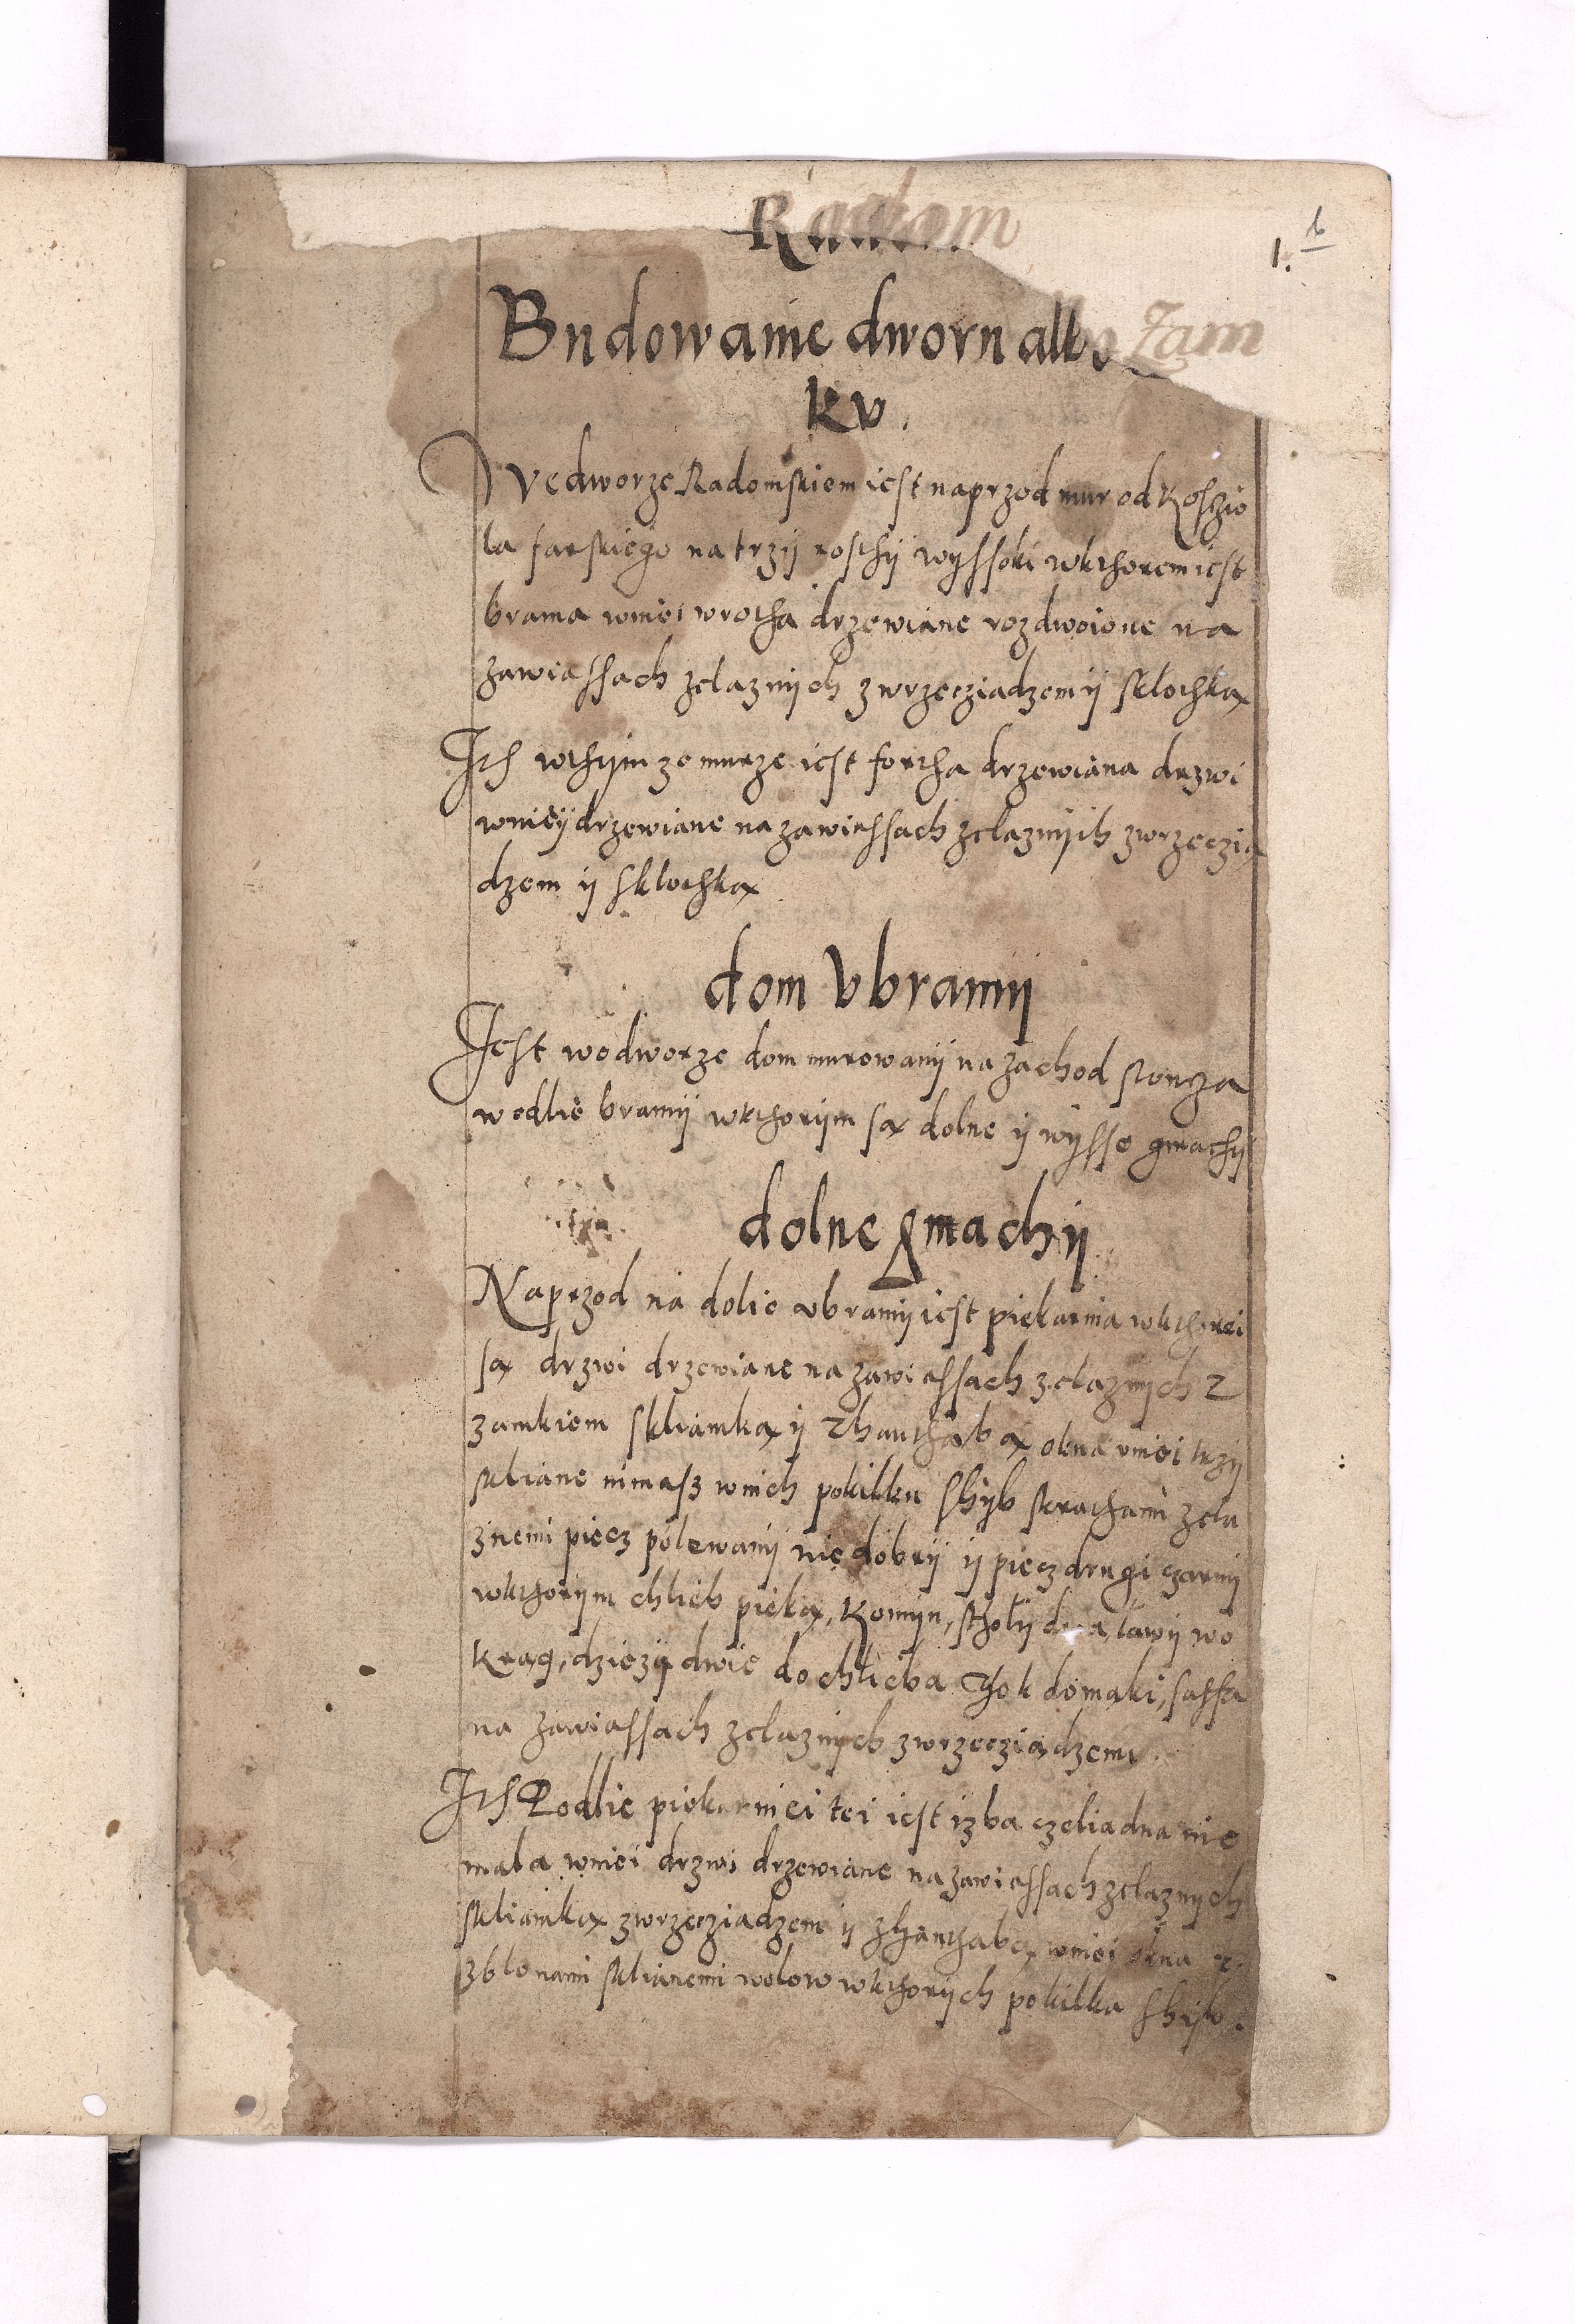 Radom
1. b
Budowanie dworu albo Zam
kv.
Wedworze Radomskiem iest naprzod mur od Koszio
la farskiego na trzÿ rosthÿ wÿssoki wkthorem iest
brama wniei wrotha drzewiane rozdwoione na
zawiassach zelaznÿch zwrzecziadzem ÿ sklothką
Ith wthÿm ze murze iest fortha drzewiana drzwi
wnieÿ drzewiane na zawiassach zelaznÿch zwrzeczią
dzem ÿ sklothką
dom Vbramÿ
Jest wedworze dom murowanÿ na zachod sloncza
wedlie bramÿ wkthorÿm są dolne ÿ wÿsse gmachÿ
dolne gmachÿ
Naprzod na dolie vbramÿ iest piekarnia wkthorei
są drzwi drzewiane na zawiassach zelaznÿch z
zamkiem skliamką ÿ zhanthabą okna wniei trzÿ
skliane nimasz wnich pokilku shÿb skrathami zela
znemi piecz polewanÿ niedobrÿ ÿ piecz drugi czarnÿ
wkthorÿm chlieb pieką, Komÿn, stholÿ dwa, lawÿ wo
krąg, dziezÿ dwie do chlieba Thok do mąki, sassa
na zawiassach zelaznÿch zwrzecziądzem.
Ith Podlie piekarniei tei iest izba czeliadna nie
mala wniei drzwi drzewiane na zawiassach zelaznÿch
skliamką zwrzecziadzem ÿ zhanthabą wniei okna
zblonami sklianemi wolow wkthorÿch pokilka shÿb.